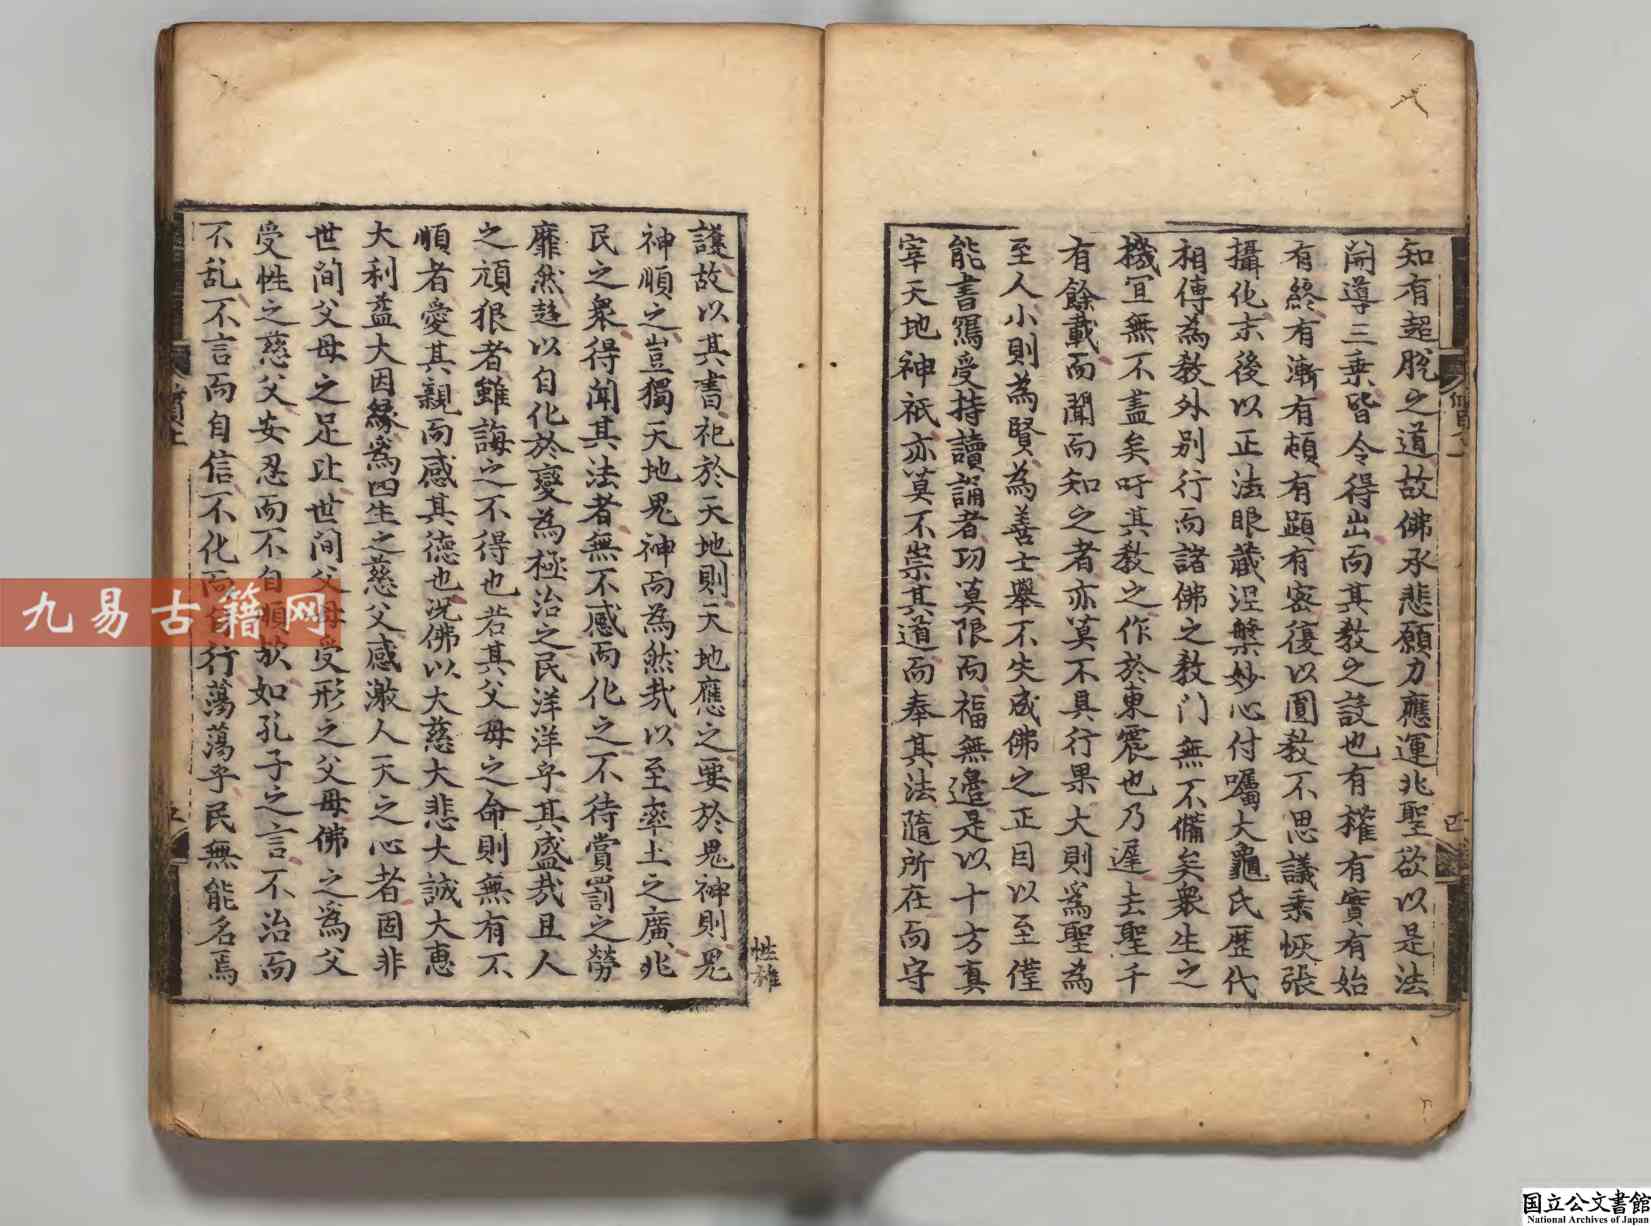 知有超脱之道故佛承悲願力應運兆聖欲以是法
開導三乗皆令得出而其教之設也有權有實有始
有終有漸有頓有顕有密復以圓教不思議乗恢張
攝化末後以正法眼蔵涅槃妙心付囑大龜氏歴代
相傳為教外别行而諸佛之教门無不備矣衆生之
機宜無不盡矣吁其教之作於東震也乃遅去聖千
有餘載而聞而知之者亦莫不具行果大則爲聖為
至人小則為賢為善士舉不失成佛之正因以至僅
能書寫受持讀誦者功莫限而福無邉是以十方真
宰天地神祇亦莫不崇其道而奉其法隨所在而守
護故以其書祀於天地則天地應之要於鬼神則鬼
神順之豈獨天地鬼神而為然哉以至率土之廣兆
民之衆得聞其法者無不感而化之不待賞罰之勞
靡然趍以自化於變為極治之民洋洋乎其盛哉且人
之頑狠者雖誨之不得也若其父母之命則無有不
順者愛其親而感其徳也况佛以大慈大悲大誠大恵
大利益大因縁爲四生之慈父感激人天之心者固非
世间父母之足比世间父母受形之父母佛之爲父
受性之慈父安忍而不自順於如孔子之言不治而
不乱不言而自信不化而自行蕩蕩乎民無能名焉
性雜
九易古籍网
国立公文書館
National Archives of Japan